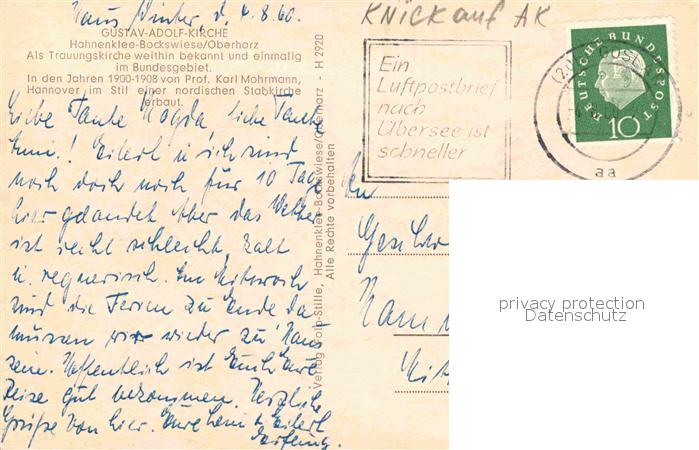 Haus Winter, d. 4.8.60.
KNICK auf AK
GUSTAV-ADOLF-KIRCHE
Hahnenklee-Bockswiese/Oberharz
Als Trauungskirche weithin bekannt und einmalig
im Bundesgebiet.
In den Jahren 1900-1908 von Prof. Karl Mohrmann,
Hannover im Stil einer nordischen Stabkirche
erbaut.
Liebe Tante Magda, liebe Tante
! Eilert u. ich sind
noch doch noch für 10 Tage
hier gelandet. Aber das Wetter
ist recht schlecht, kalt
u. regnerisch. Am Mittwoch
sind die Ferien zu Ende da
müssen wir wieder zu Haus
sein. Hoffentlich ist Euch Eure
Reise gut bekommen. Herzliche
Grüße von hier. Eure u. Eilert
Verlag Foto-Stille, Hahnenklee-Bockswiese/Oberharz - H 2920
Alle Rechte vorbehalten
Ein
Luftpostbrief
nach
Übersee ist
schneller
DEUTSCHE BUNDESPOST
10
GOSLAR
aa
An
Geschw
Hann
privacy protection
Datenschutz